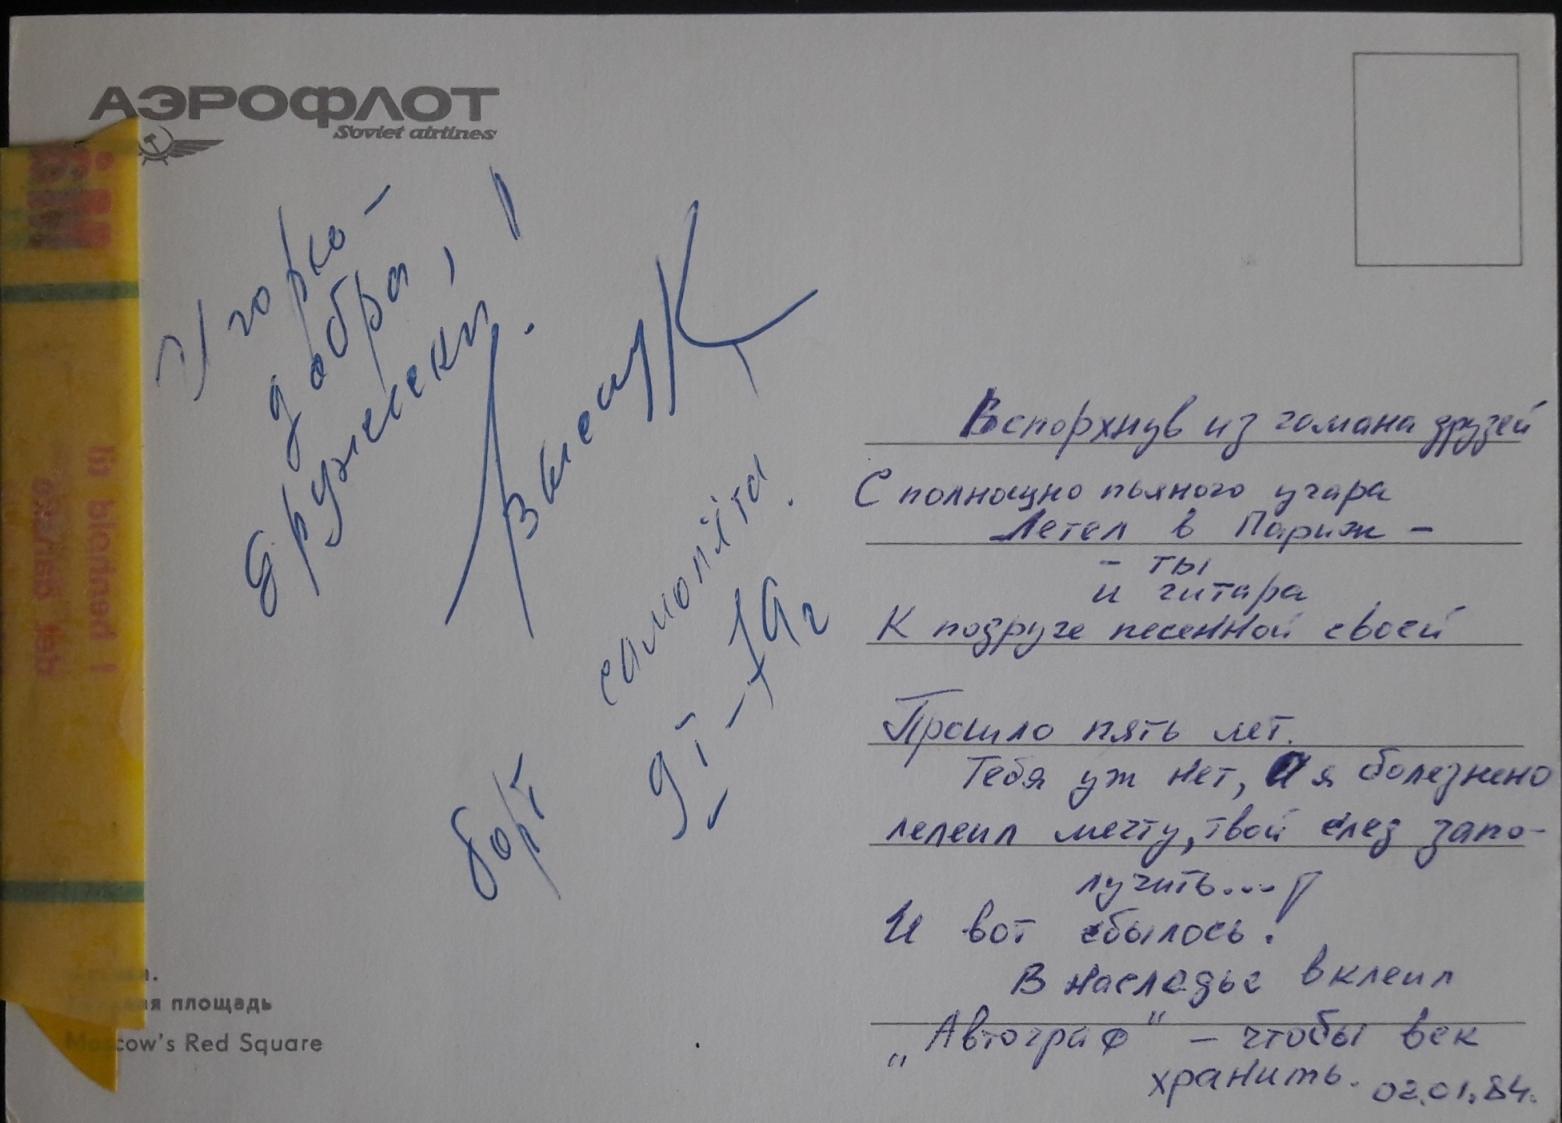 АЭРОФЛОТ
Soviet airlines
Игорю –
добра,
дружески!
В. Высоцк
борт самолёта.
9 I – 79г
Вспорхнув из гомана друзей
С полнощно пьяного угара
Летел в Париж –
– ты
и гитара
К подруге песенной своей
Прошло пять лет.
Тебя уж нет, а я болезнено
лелеил мечту, твой след запо-
лучить...
И вот сбылось!
В наследье вклеил
„Автограф" – чтобы век
хранить. 02.01.84.
площадь
Moscow's Red Square